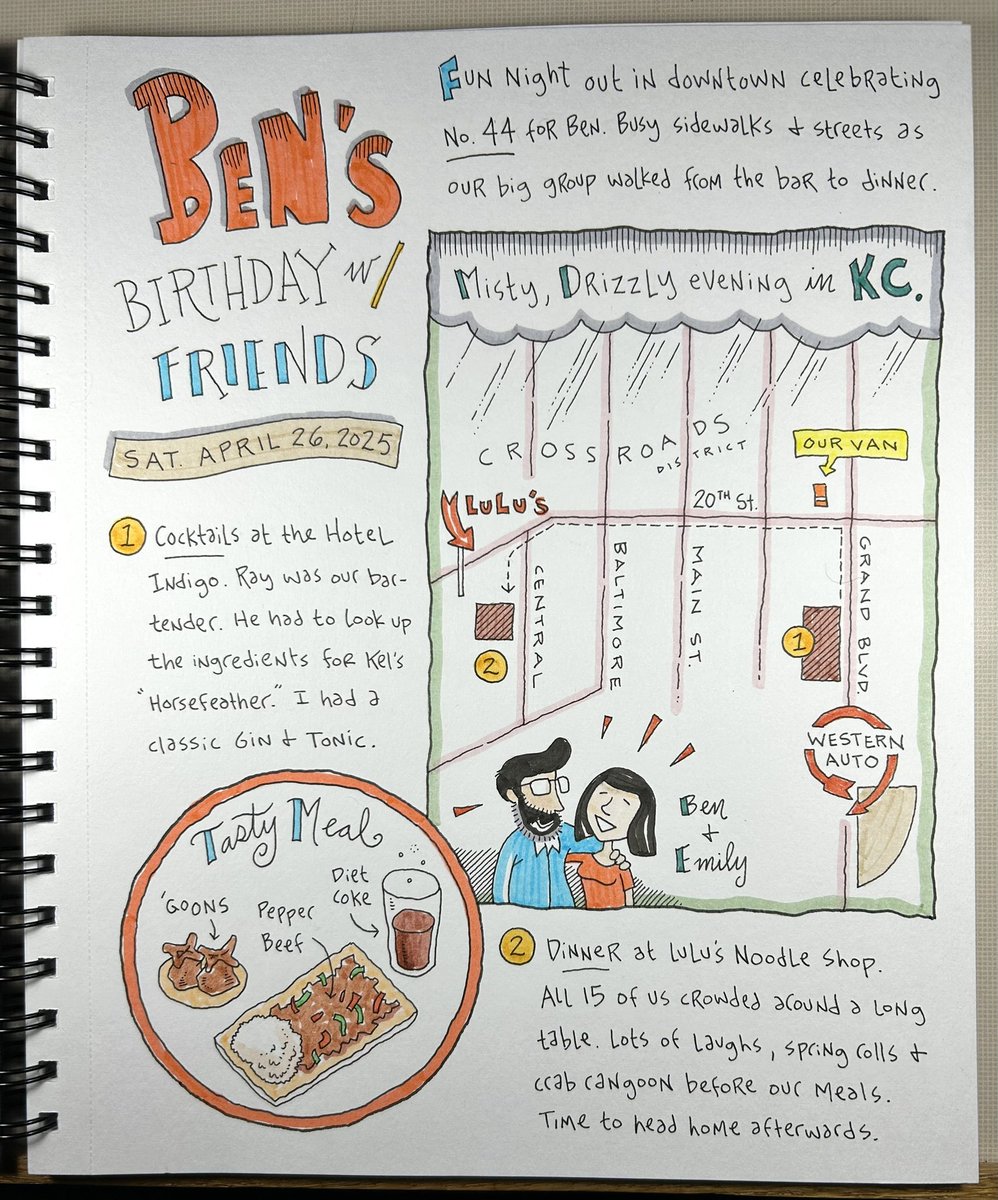 BEN'S
BIRTHDAY W/
FRIENDS
SAT. APRIL 26, 2025
FUN Night out in downtown celebrating
No. 44 for Ben. Busy sidewalks + streets as
our big group walked from the bar to dinner.
Misty, Drizzly evening in KC.
CROSSROADS
DISTRICT
OUR VAN
20TH St.
LULU'S
CENTRAL
BALTIMORE
MAIN ST.
GRAND BLVD.
1
2
WESTERN
AUTO
Ben
+
Emily
1 Cocktails at the Hotel
Indigo. Ray was our bar-
tender. He had to look up
the ingredients for Kel's
"Horsefeather." I had a
classic Gin + Tonic.
Tasty Meal
'GOONS
Pepper
Beef
Diet
Coke
2 Dinner at Lulu's Noodle Shop.
All 15 of us crowded around a long
table. Lots of laughs, spring rolls +
crab rangoon before our meals.
Time to head home afterwards.